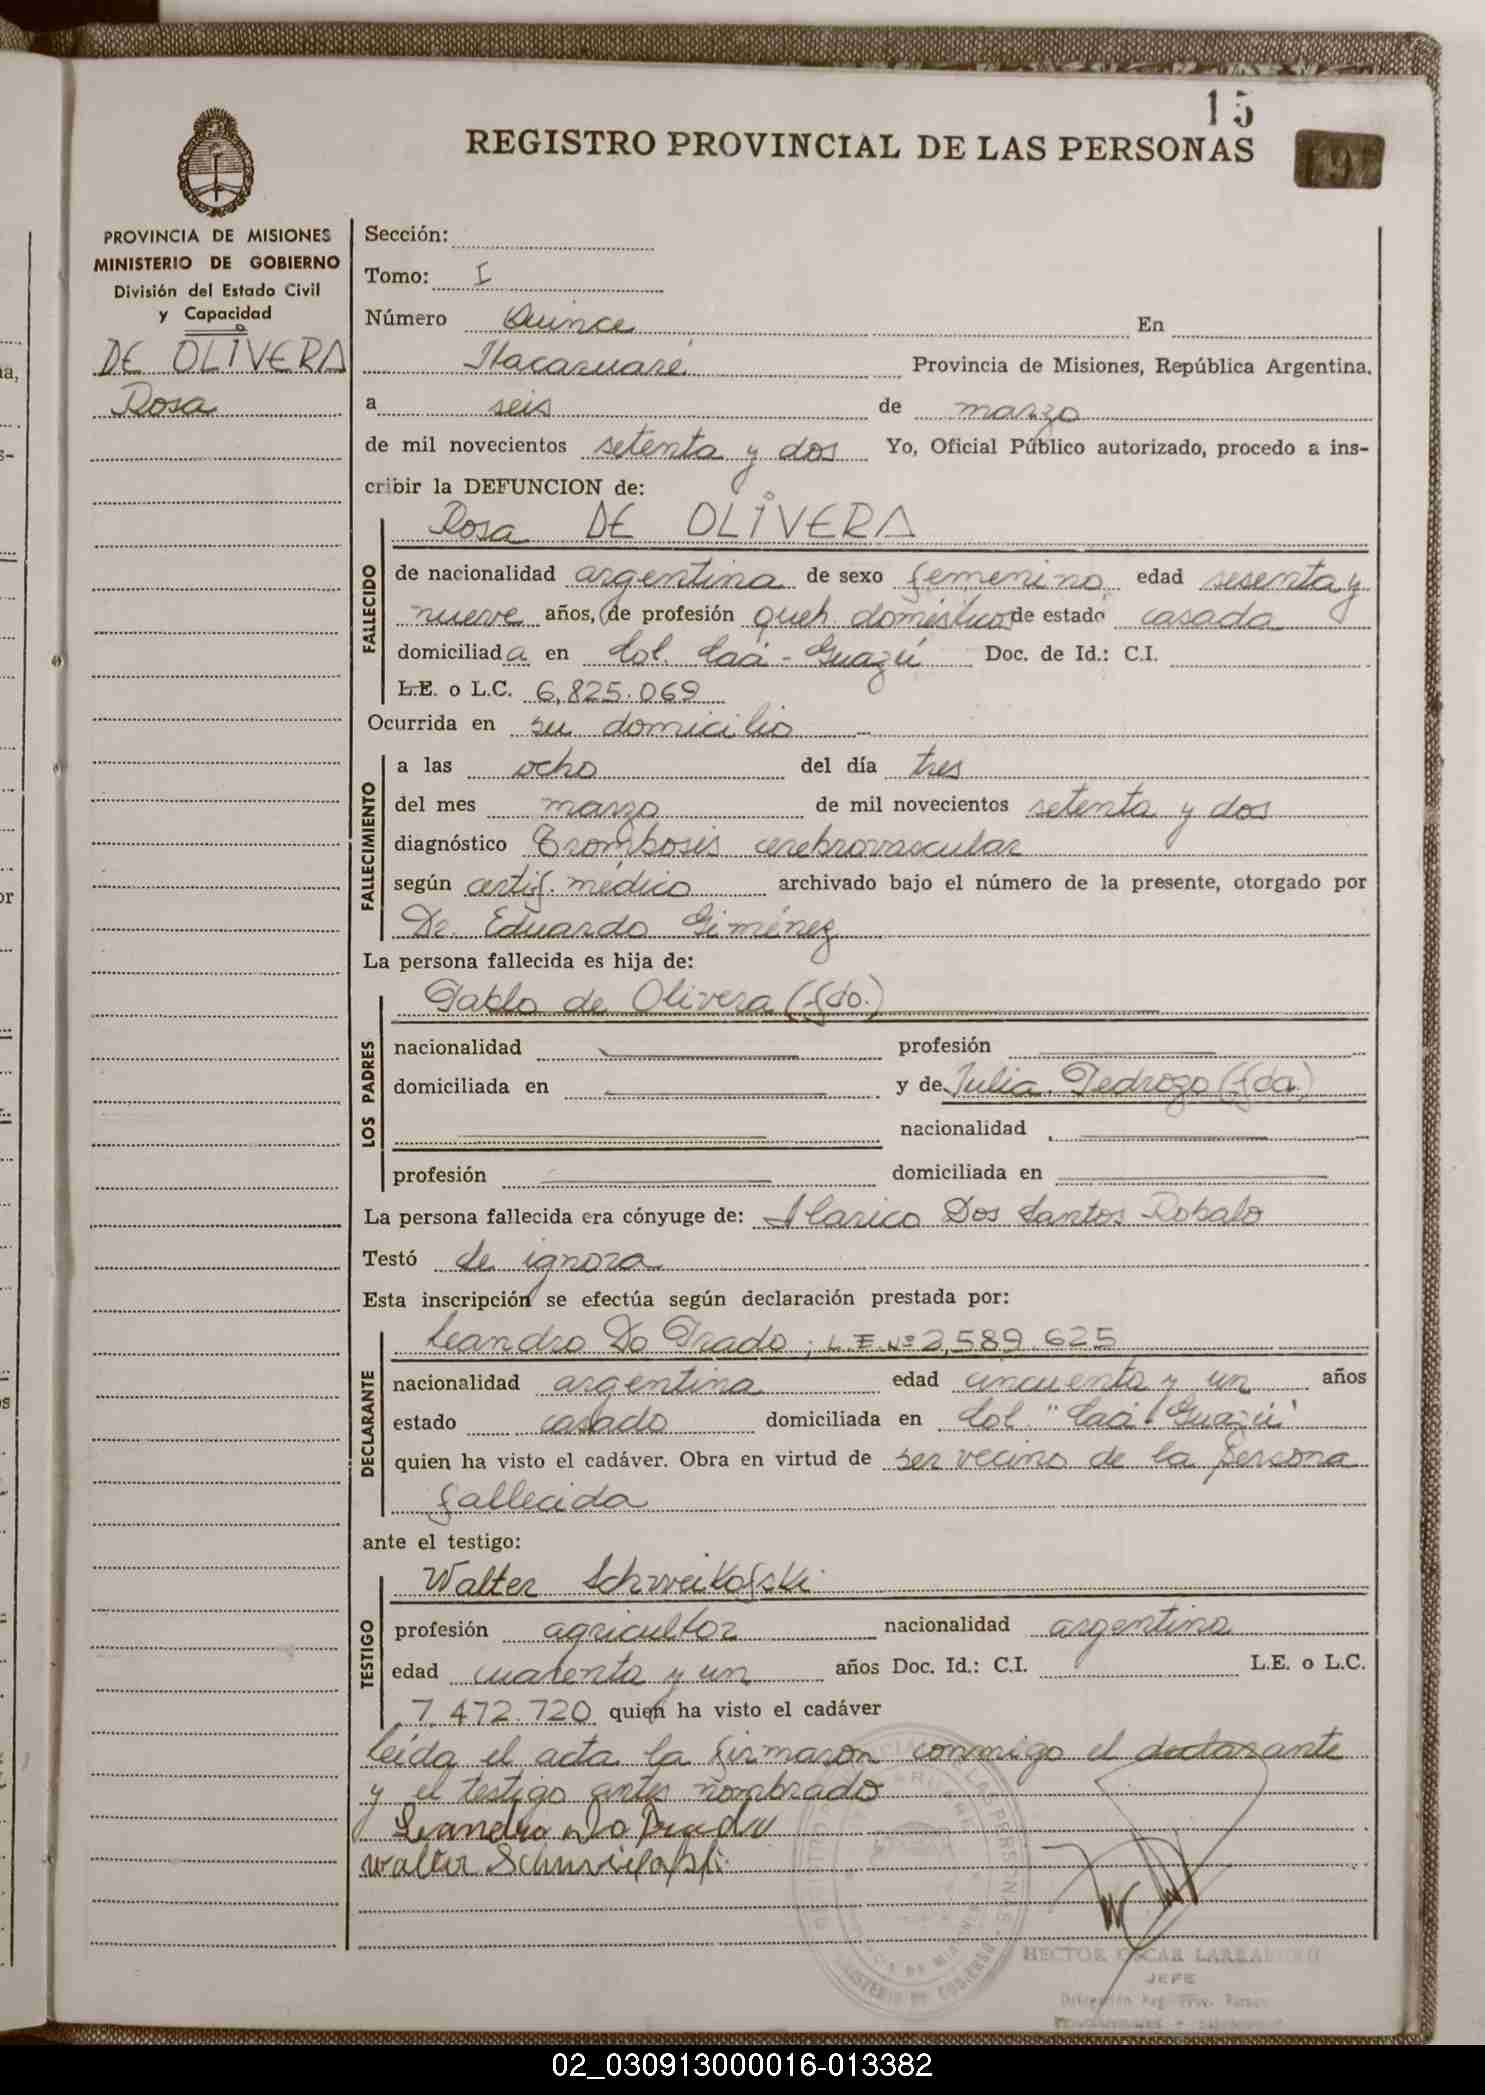 15
REGISTRO PROVINCIAL DE LAS PERSONAS
PROVINCIA DE MISIONES
MINISTERIO DE GOBIERNO
División del Estado Civil
y Capacidad
DE OLIVERA
Rosa
Sección:
Tomo: I
Número Quince En
Itacaruaré Provincia de Misiones, República Argentina,
a seis de marzo
de mil novecientos setenta y dos Yo, Oficial Público autorizado, procedo a ins-
cribir la DEFUNCION de:
Rosa DE OLIVERA
FALLECIDO
de nacionalidad argentina de sexo femenino edad sesenta y
nueve años, de profesión queh. domésticos de estado casada
domiciliada en Col. Caá-Guazú Doc. de Id.: C.I.
L.E. o L.C. 6,825.069
Ocurrida en su domicilio
FALLECIMIENTO
a las ocho del día tres
del mes marzo de mil novecientos setenta y dos
diagnóstico Trombosis cerebrovascular
según certif. médico archivado bajo el número de la presente, otorgado por
Dr. Eduardo Giménez
La persona fallecida es hija de:
Pablo de Olivera (fdo.)
LOS PADRES
nacionalidad profesión
domiciliada en y de Julia Pedrozo (fda.)
nacionalidad
profesión domiciliada en
La persona fallecida era cónyuge de: Alarico Dos Santos Robalo
Testó se ignora
Esta inscripción se efectúa según declaración prestada por:
Leandro Do Prado; L.E. Nº 2,589.625
DECLARANTE
nacionalidad argentina edad cincuenta y un años
estado casado domiciliada en Col. "Caá Guazú"
quien ha visto el cadáver. Obra en virtud de ser vecino de la persona
fallecida
ante el testigo:
Walter Schweikofski
TESTIGO
profesión agricultor nacionalidad argentina
edad cuarenta y un años Doc. Id.: C.I. L.E. o L.C.
7.472.720 quien ha visto el cadáver
leída el acta la firmaron conmigo el declarante
y el testigo antes nombrado
Leandro Do Prado
Walter Schweikofski
HECTOR OSCAR
JEFE
02_030913000016-013382